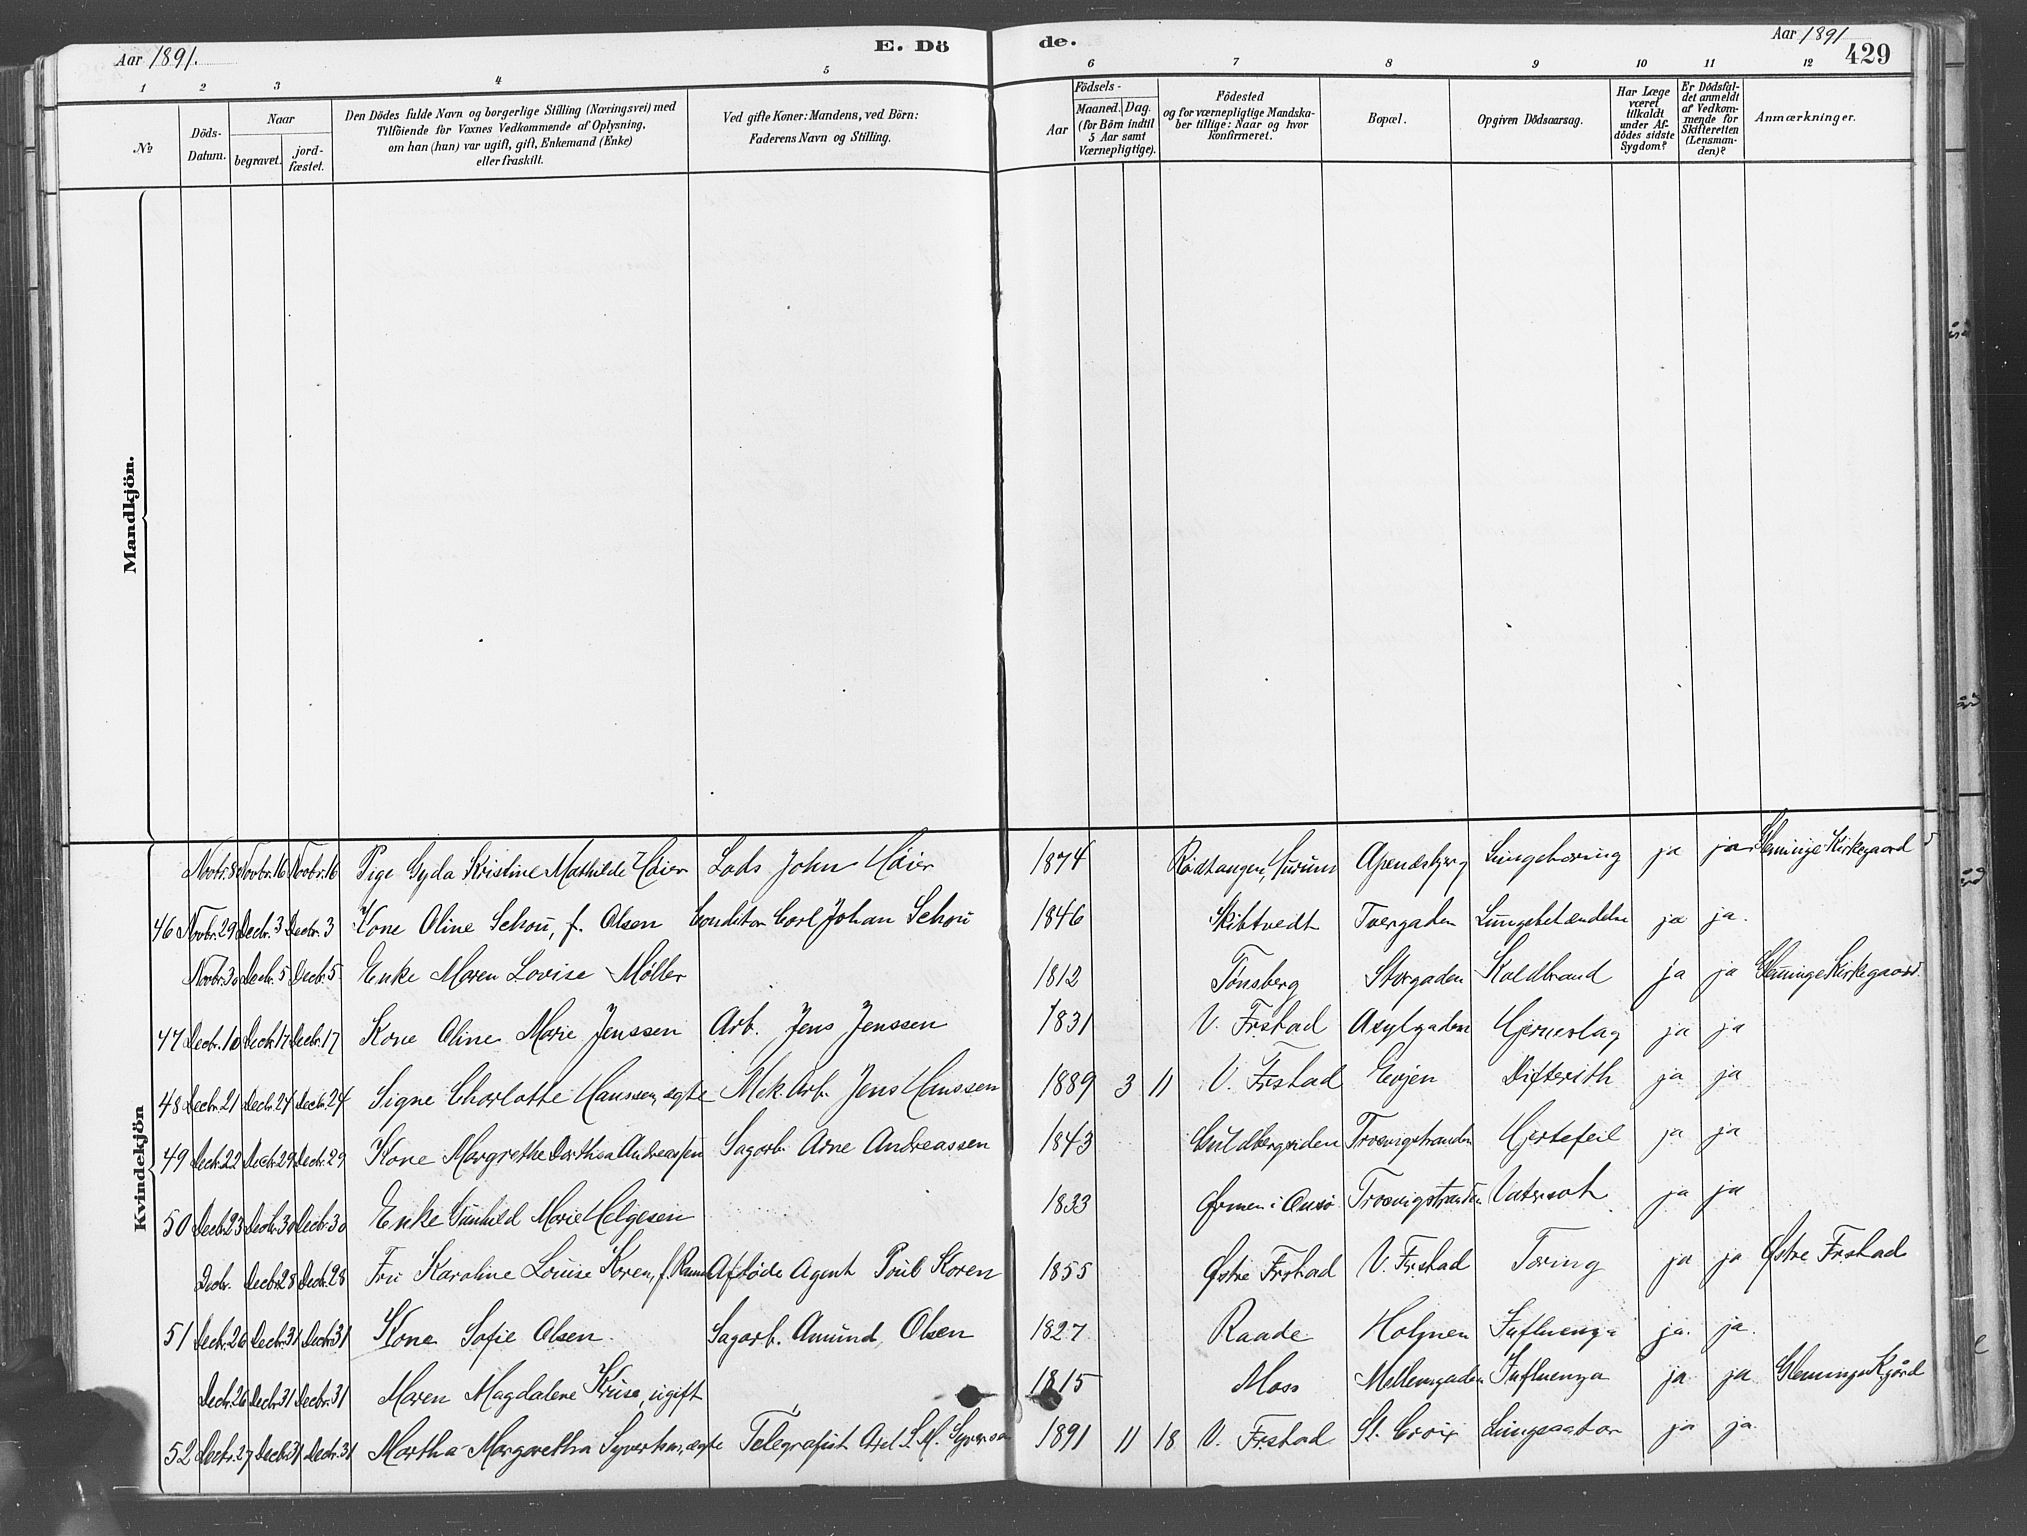 Aar 1891.
E. Dö
de.
Aar 1891
429
1 2 3 4 5 6 7 8 9 10 11 12
№
Döds-Datum.
Naar
begravet.
jord-fæstet.
Den Dödes fulde Navn og borgerlige Stilling (Næringsvei) med
Tilföiende for Voxnes Vedkommende af Oplysning,
om han (hun) var ugift, gift, Enkemand (Enke)
eller fraskilt.
Ved gifte Koner: Mandens, ved Börn:
Faderens Navn og Stilling.
Födsels-
Aar
Maaned. Dag.
(for Börn indtil
5 Aar samt
Værnepligtige).
Födested
og for værnepligtige Mandska-
ber tillige: Naar og hvor
konfirmeret.
Bopæl.
Opgiven Dödsaarsag.
Har Læge
været
tilkaldt
under Af-
dödes sidste
Sygdom?
Er Dödsfal-
det anmeldt
af Vedkom-
mende for
Skifteretten
(Lensman-
den)?
Anmærkninger.
Mandkjön.
Kvindekjön
Novbr. 8 Novbr. 16 Novbr. 16 Pige Gyda Kristine Mathilde Høier Lods John Høier 1874 Rødtangen, Hurum Apenæsbjerg Lungetæring ja ja Glemminge Kirkegaard
46 Novbr. 29 Decbr. 3 Decbr. 3 Kone Oline Schou, f. Olsen Conditor Carl Johan Schou 1846 Skibtvedt Tvergaden Lungebetændelse ja ja.
Novbr. 30 Decbr. 5 Decbr. 5 Enke Maren Lovise Møller 1812 Tønsberg Storgaden Koldbrand ja ja Glemminge Kirkegaard.
47 Decbr. 10 Decbr. 17 Decbr. 17 Kone Oline Marie Jenssen Arb. Jens Jenssen 1831 V. Frstad Asylgaden Hjerneslag ja ja
48 Decbr. 21 Decbr. 24 Decbr. 24 Signe Charlotte Hanssen, ægte Mek. Arb. Jens Hanssen 1889 3 11 V. Frstad Evjen Difterith ja ja
49 Decbr. 22 Decbr. 29 Decbr. 29 Kone Margrethe Dorthea Andreassen Sagarb. Arne Andreassen 1843 Guldbergsiden Trosvigstranden Hjertefeil ja ja
50 Decbr. 23 Decbr. 30 Decbr. 30 Enke Gunhild Marie Helgesen 1833 Ørmen i Onsø Trosvigstranden Vatersot ja ja
Decbr. Decbr. 28 Decbr. 28 Fru Karoline Louise Koren, f. Afdøde Agent Poul Koren 1855 Østre Frstad V. Frstad Tæring ja ja Østre Frstad
51 Decbr. 26 Decbr. 31 Decbr. 31 Kone Sofie Olsen. Sagarb. Amund Olsen 1827 Raade Holmen Influenza ja. ja.
Decbr. 26 Decbr. 31 Decbr. 31 Maren Magdalene Kruse, ugift 1815 Moss Mellemgaden Influenza ja ja Glemminge Kgård
52 Decbr. 27 Decbr. 31 Decbr. 31 Martha Margarethe Syvertsen, ægte Telegrafist Axel 1891 11 18 V. Frstad St. Croix Lungecatar ja ja.